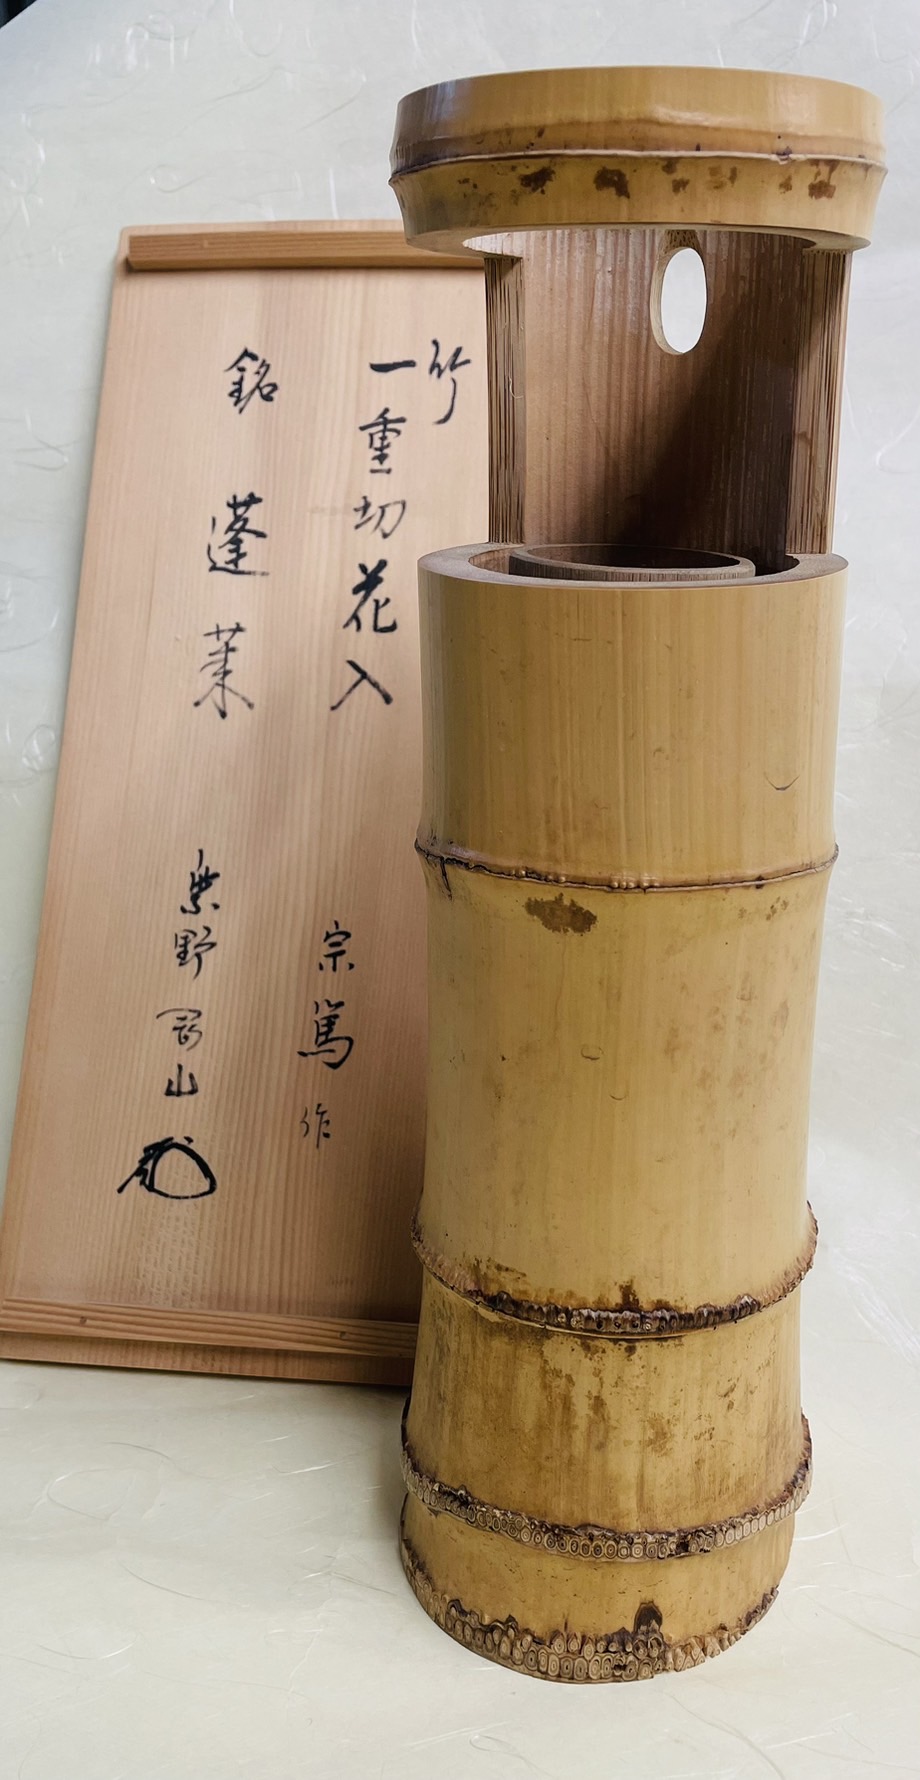 竹
一重切花入
宗篤作
銘 蓬莱
紫野
山